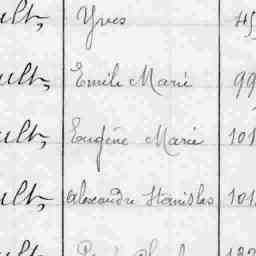 ult, Yves 45
ult, Emile Marie 99
ult, Eugène Marie 101
ult, Alexandre Stanislas 101
ult,